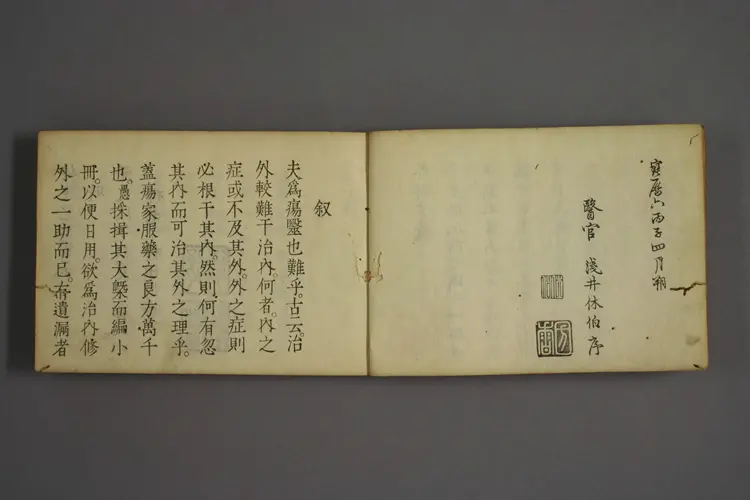 寳暦六丙子四月朔
毉官 淺井休伯序
叙
夫爲瘍毉也難乎。古云。治
外較難于治內。何者。內之
症或不及其外。外之症則
必根于其內。然則何有忽
其內而可治其外之理乎。
蓋瘍家服藥之良方萬千
也。愚採揖其大槩而編小
冊。以便日用。欲爲治內修
外之一助而已。有遺漏者